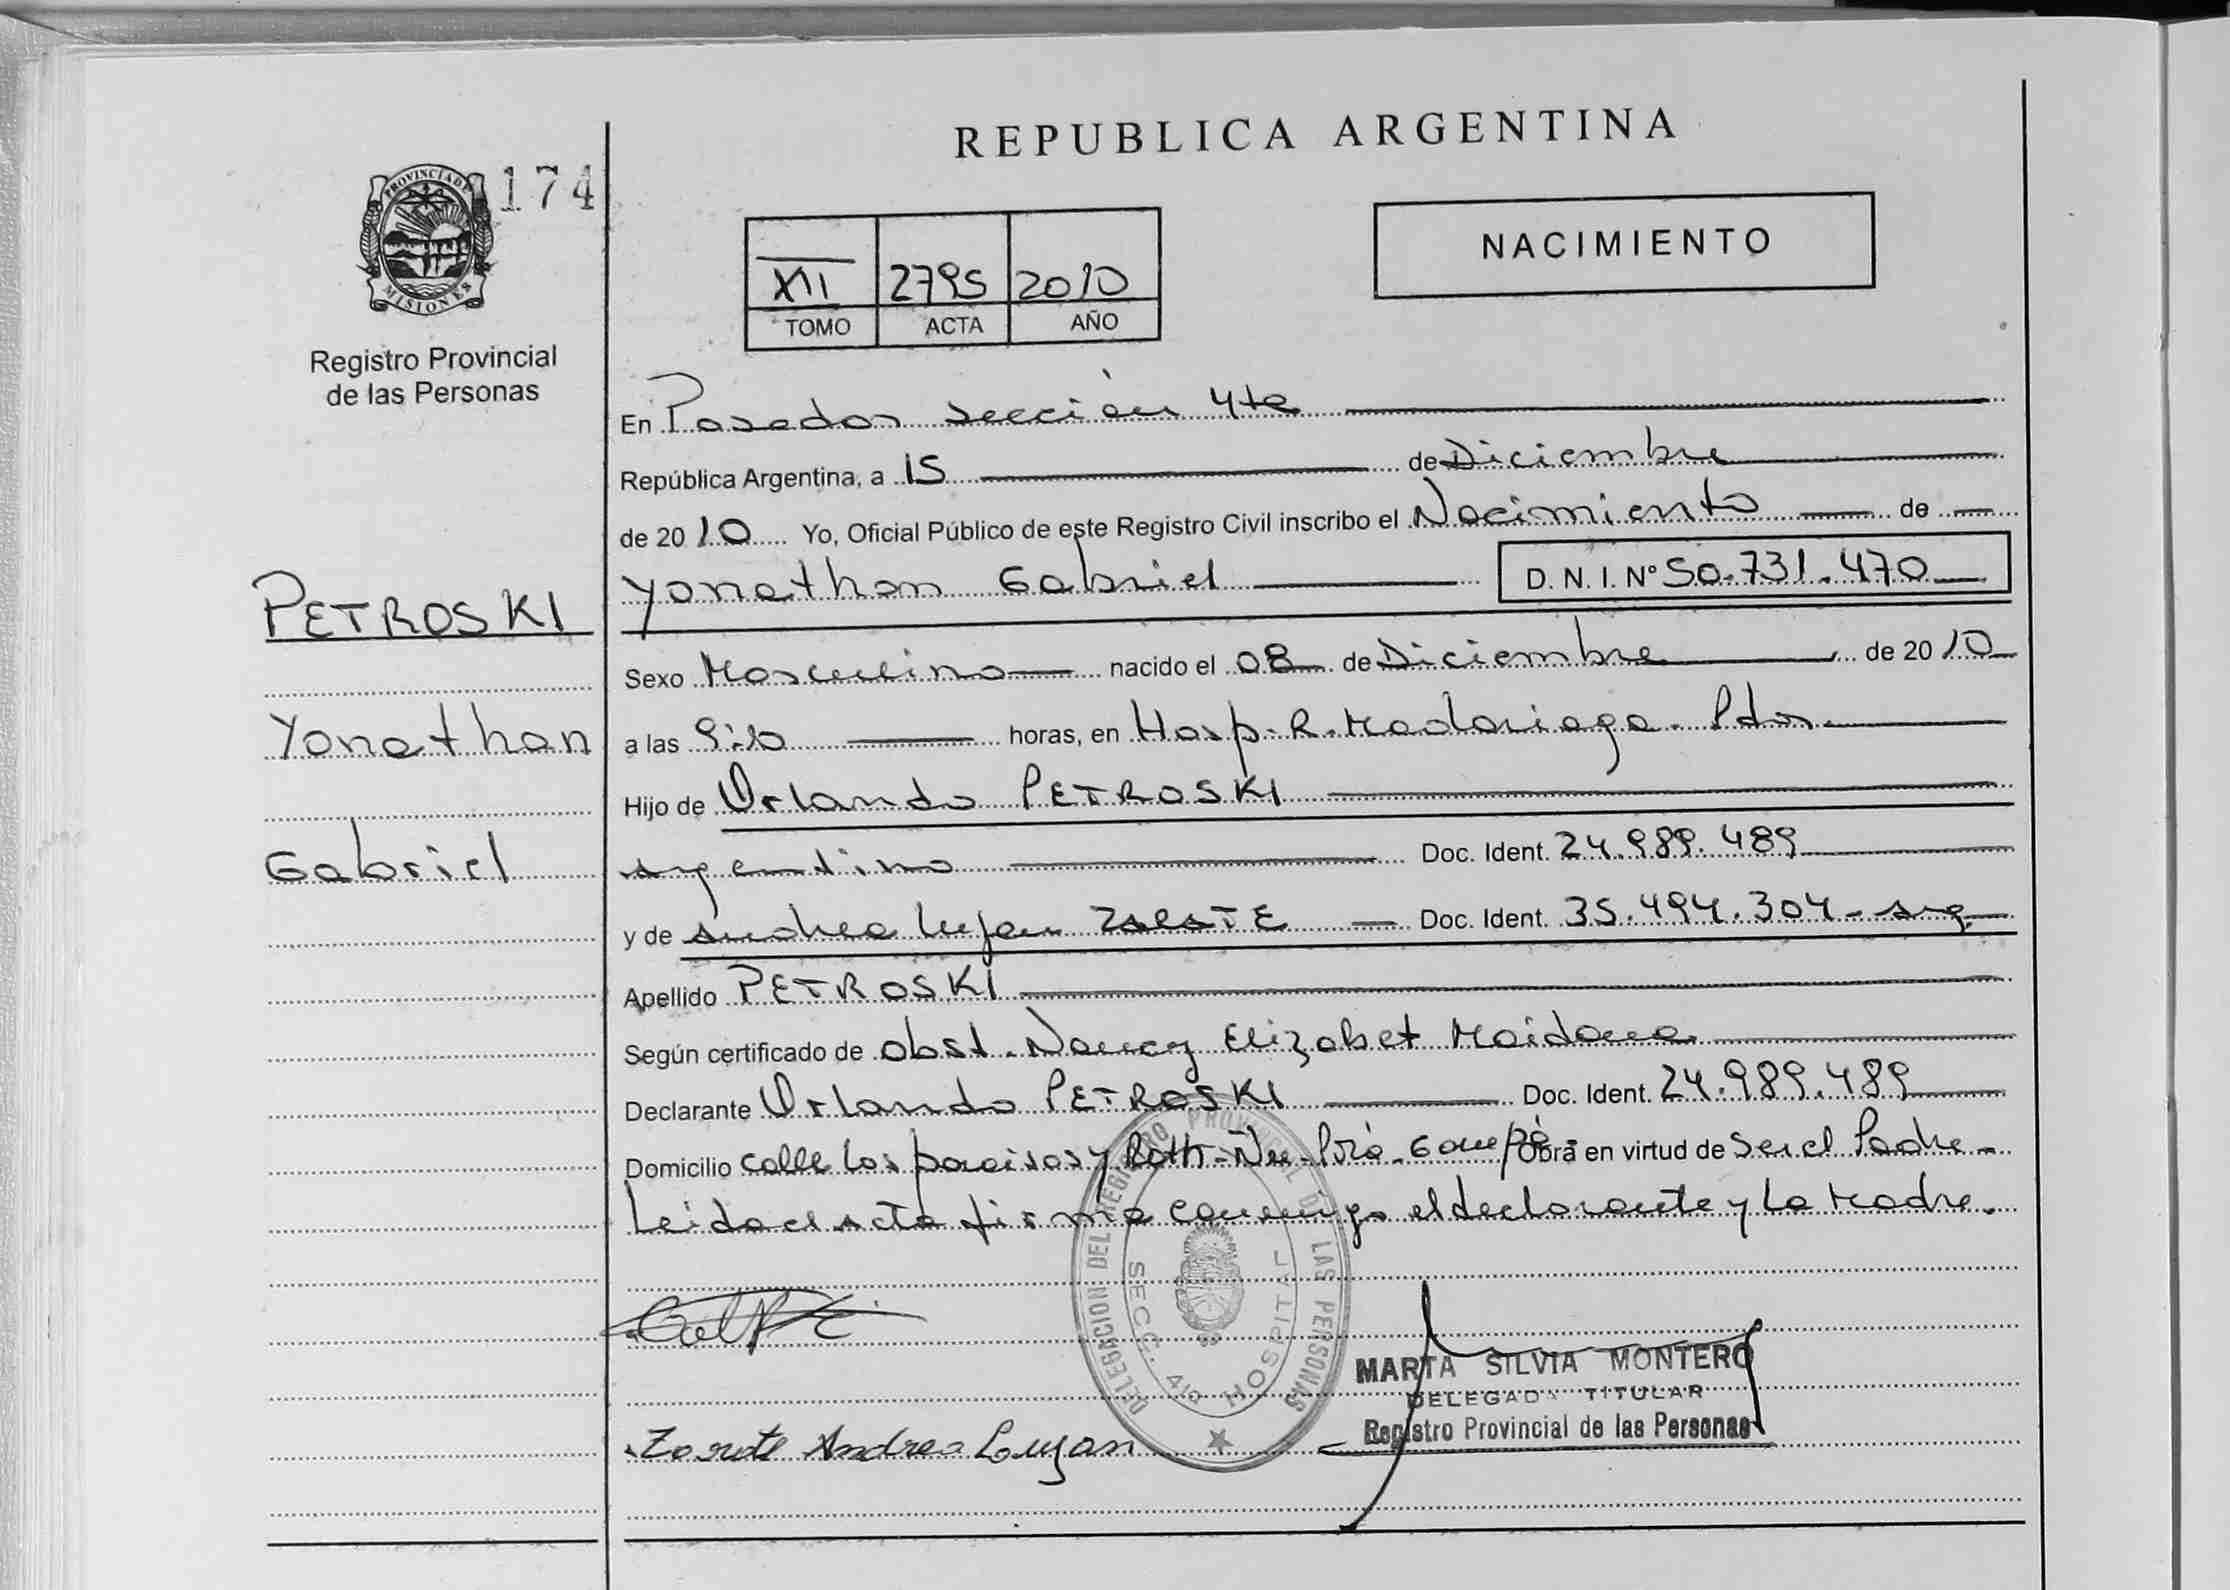 REPUBLICA ARGENTINA
PROVINCIA DE MISIONES
174
Registro Provincial
de las Personas
XII 2795 2010
TOMO ACTA AÑO
NACIMIENTO
En Posadas sección 4ta
República Argentina, a 15 de Diciembre
de 2010 Yo, Oficial Público de este Registro Civil inscribo el Nacimiento de
PETROSKI
Yonathan Gabriel D. N. I. Nº 50.731.470
Sexo Masculino nacido el 08 de Diciembre de 2010
Yonathan
a las 9:10 horas, en Hosp. R. Madariaga - Pdas.
Hijo de Orlando PETROSKI
Gabriel
argentino Doc. Ident. 24.989.489
y de Andrea Lujan ZARATE Doc. Ident. 35.494.304 - arg.
Apellido PETROSKI
Según certificado de obst. Nancy Elizabet Maidana
Declarante Orlando PETROSKI Doc. Ident. 24.989.489
Domicilio calle Los paraisos y Roth - Obra en virtud de ser el Padre -
Leida el acta firma conmigo el declarante y la Madre.
DELEGACION DEL REGISTRO PROVINCIAL DE LAS PERSONAS
SECC. 4ta HOSPITAL
MARTA SILVIA MONTERO
DELEGADA TITULAR
Registro Provincial de las Personas
Zarate Andrea Lujan